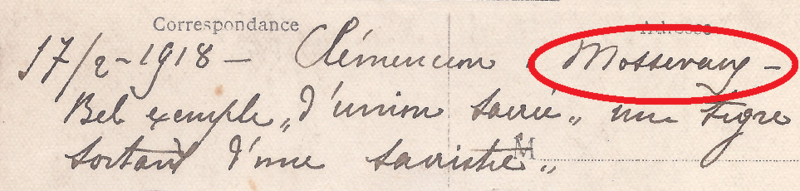 Correspondance Adresse
17/2-1918 – Clémenceau Massevaux –
Bel exemple „d'union sacrée„ un Tigre
sortant d'une sacristie„
M